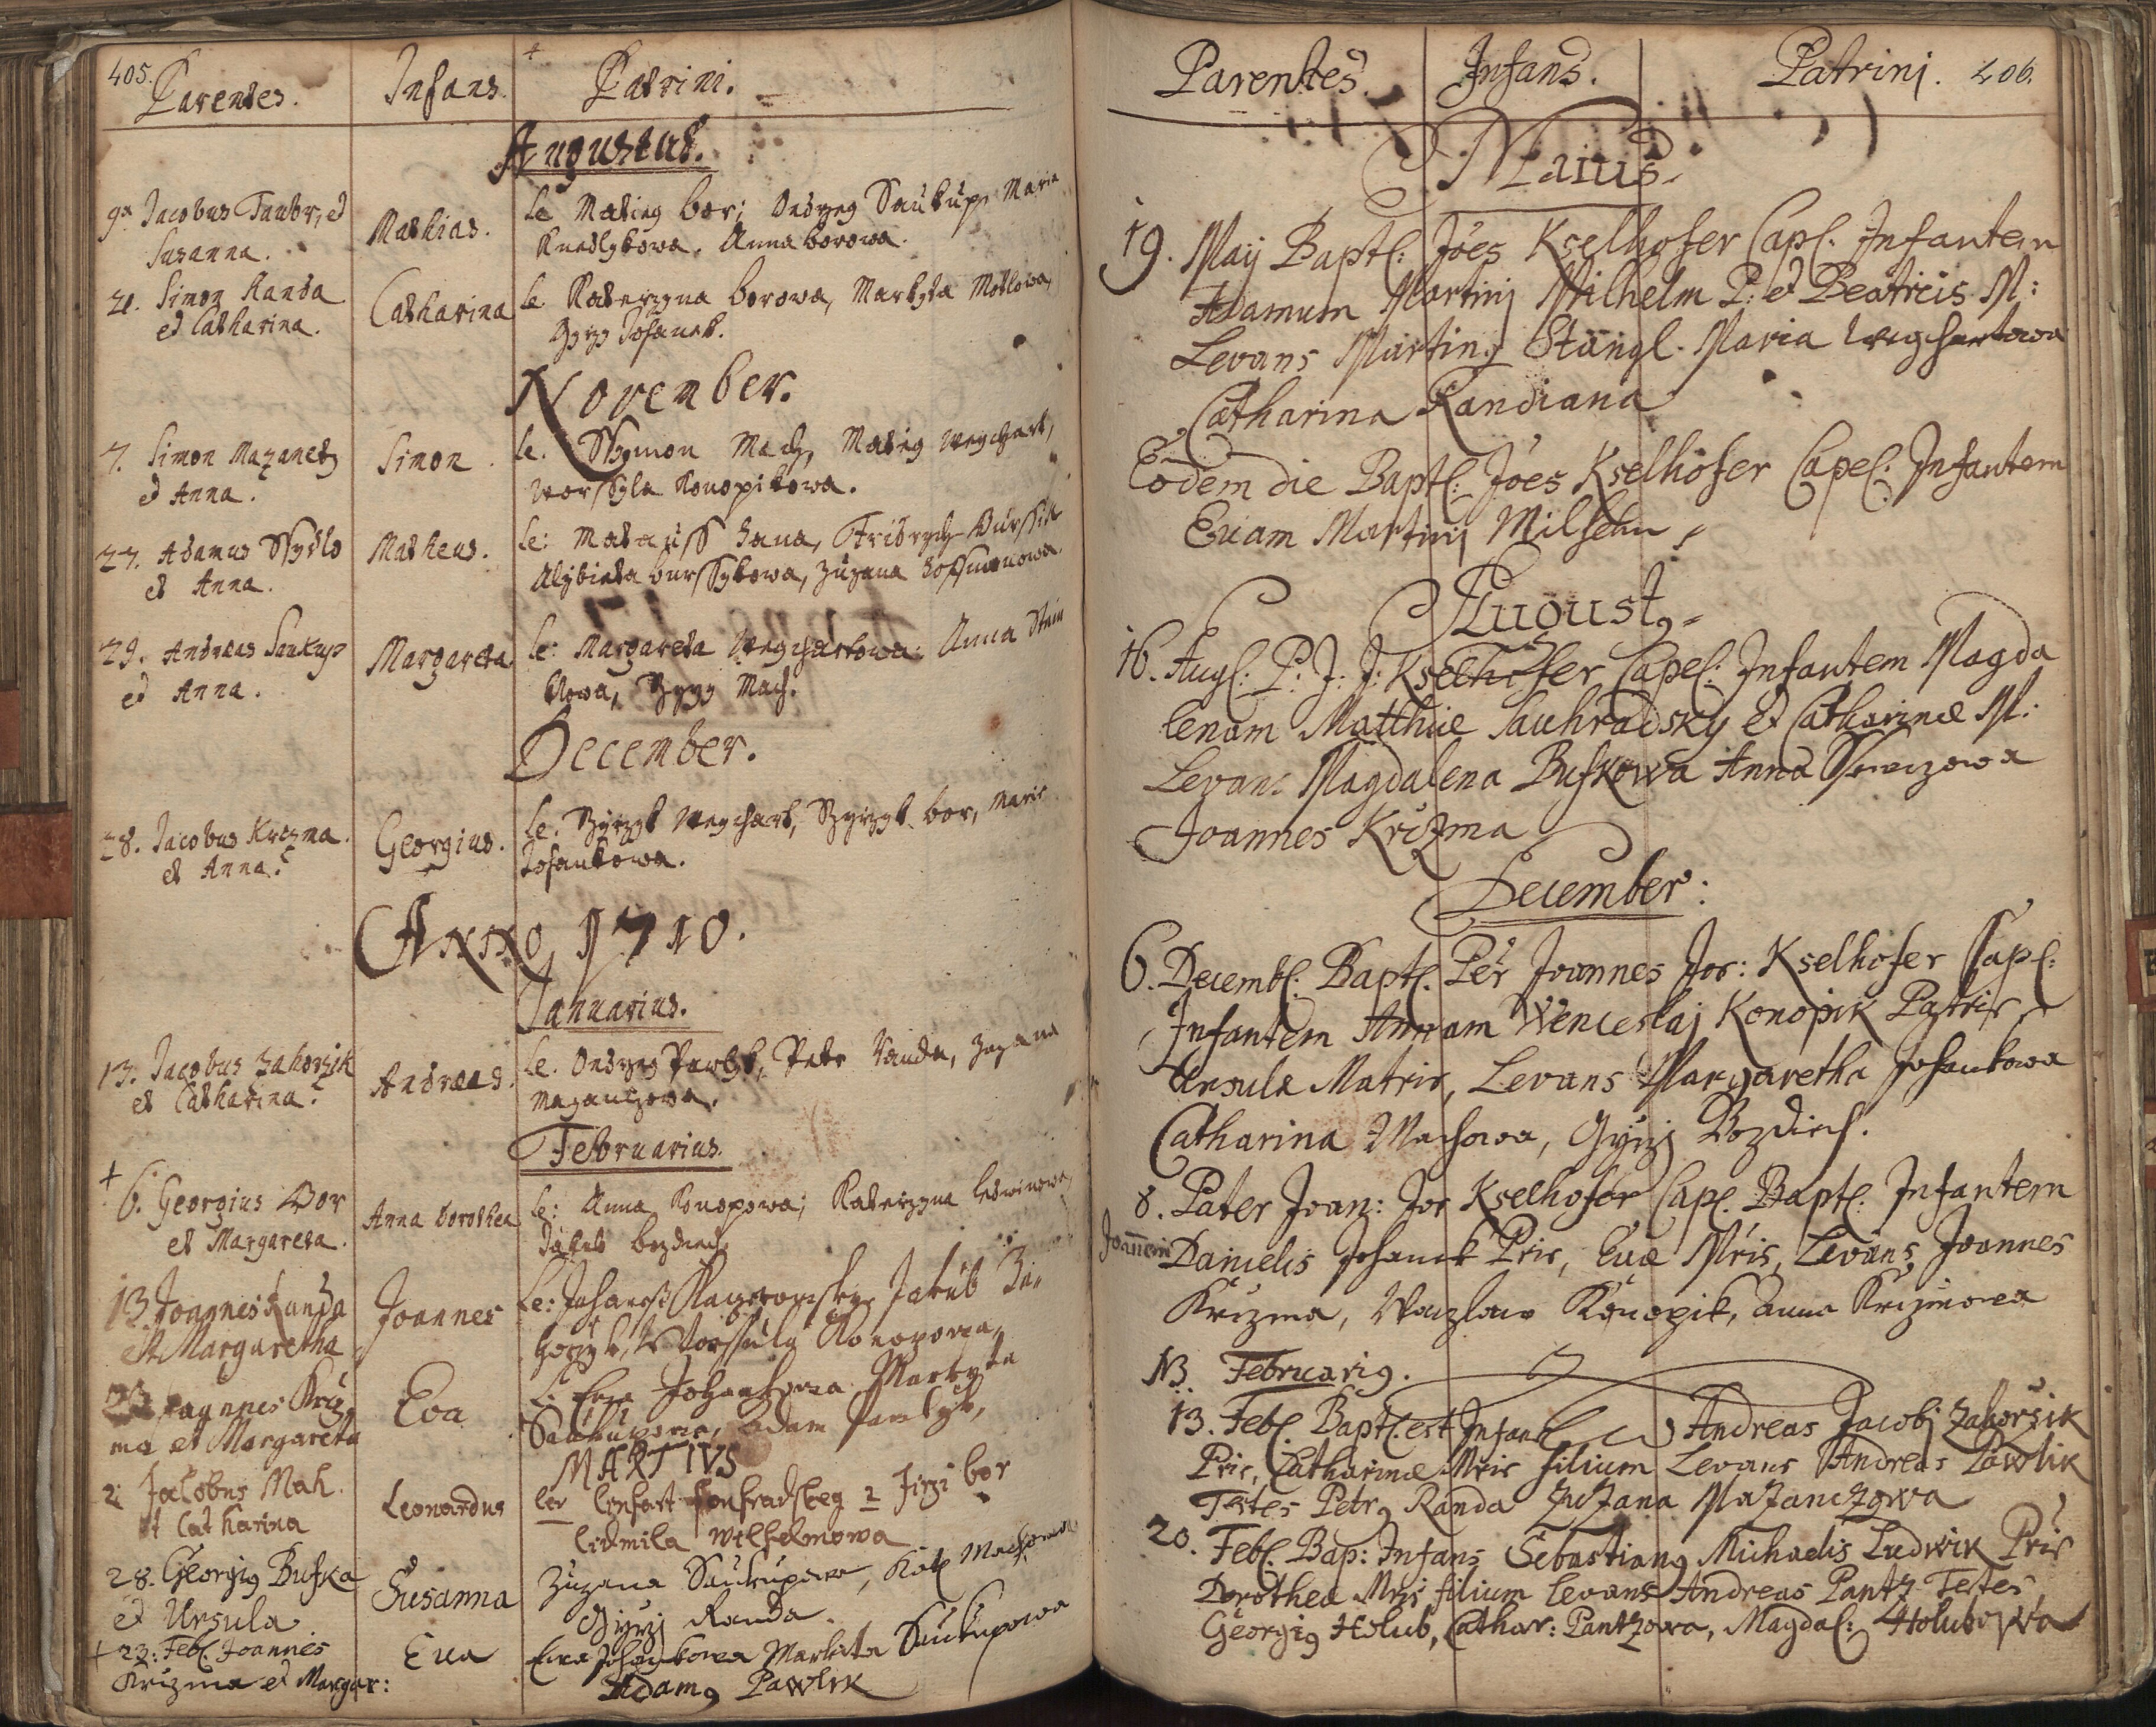 405.
Parentes. Infans. Patrini.
Augustus.
9a Jacobus Taubr, et Susanna. Mathias. le Matieg bor; Ondrzeg Saukup, Maria
Knedlykowa. Anna borowa.
21. Simon Randa et Catharina. Catharina le Katerzyna borowa, Markyta
November.
7. Simon Mazanetz et Anna. Simon. le. Ssymon Mach, Matieg Weychart,
Worssyla Konopikowa.
27. Adamus Ssydlo et Anna. Matheus. le: Matauss Jana, Fridrych
Alzbieta burssykowa, Zuzana
29. Andreas Saukup et Anna. Margareta le: Margareta Weychartowa. Anna
Mach.
December.
28. Jacobus Krizma. et Anna. Georgius. le. Weychart, bor, Marie
Johankowa.
Anno 1710.
Januarius.
13. Jacobus Zahorzik et Catharina. Andreas. le. Ondrzeg Pawlyk, Petr Randa, Zuzana
Mazanczowa.
Februarius.
+ 6. Georgius Bor et Margareta. Anna Dorothea le: Anna Konopowa; Katerzyna
Jakub bezdiech
13 Joannes Randa et Margaretha Joannes le: Jakub
Konopowa
Joannes Kriz
ma et Margareta Eva Ewa Johankowa Markyta
Saukupowa, Adam Pawlyk,
MARTIVS
2. Jacobus Mah. et Catharina Leonardus lev lenhart 2 Jirzi bor
lidmila Wilhelmowa
28. Georgig Bufka et Ursula Susanna Zuzana Saukupowa, Kat Machowa
Gyrzj Randa.
+ 23: Feb. Joannes Krizma et Margar: Eva Ewa Johankowa Markita Saukupowa
Adamg Pawlik
Parentes. Infans. Patrinj. 406.
Maius.
19. Maij Bapt: Jões Kselhofer Capl. Infantem
Adamum Martinj Wilhelm P: et Beatricis M:
Levans Marting Stängl. Maria Weychartowa
Catharina Randiana
Eodem die Bapt: Jões Kselhofer Capel. Infantem
Evam Martinj Milhelm
Augustg
16. Aug: P: J: J: Kselhofer Capel: Infantem Magda
lenam Matthiæ Sauhradsky et Catharinæ M:
Levans Magdalena Bufkowa Anna
Joannes Krizma
December:
6. Decemb. Bapt. Per Joannes Jos: Kselhofer Capl:
Infantem Annam Wenceslaj Konopik Patris
Ursulæ Matris, Levans Margaretha Johankowa
Catharina Machowa, Gyrzj Bozdiech.
8. Pater Joan: Jos Kselhofer Capl. Bapt: Infantem
Joannem Danielis Johanek Pris, Evæ Mris, Levans, Joannes
Krizma, Wazlaw Konopik, Anna Krizmowa
NB. Februarig.
13. Feb. Bapt. est Infans Andreas Jacobj Zahoržik
Pris, Catharinæ Mris filium Levans Andreas Pawlik
Testes Petrg Randa Zuzana Mazanczowa
20. Feb. Bap: Infans Sebastiang Michaelis Ludwik Pris
Dorothea Mris filium Levans Andreas Pantz Testes
Georgig Holub, Cathar: Pantzowa, Magdal: Holubowa